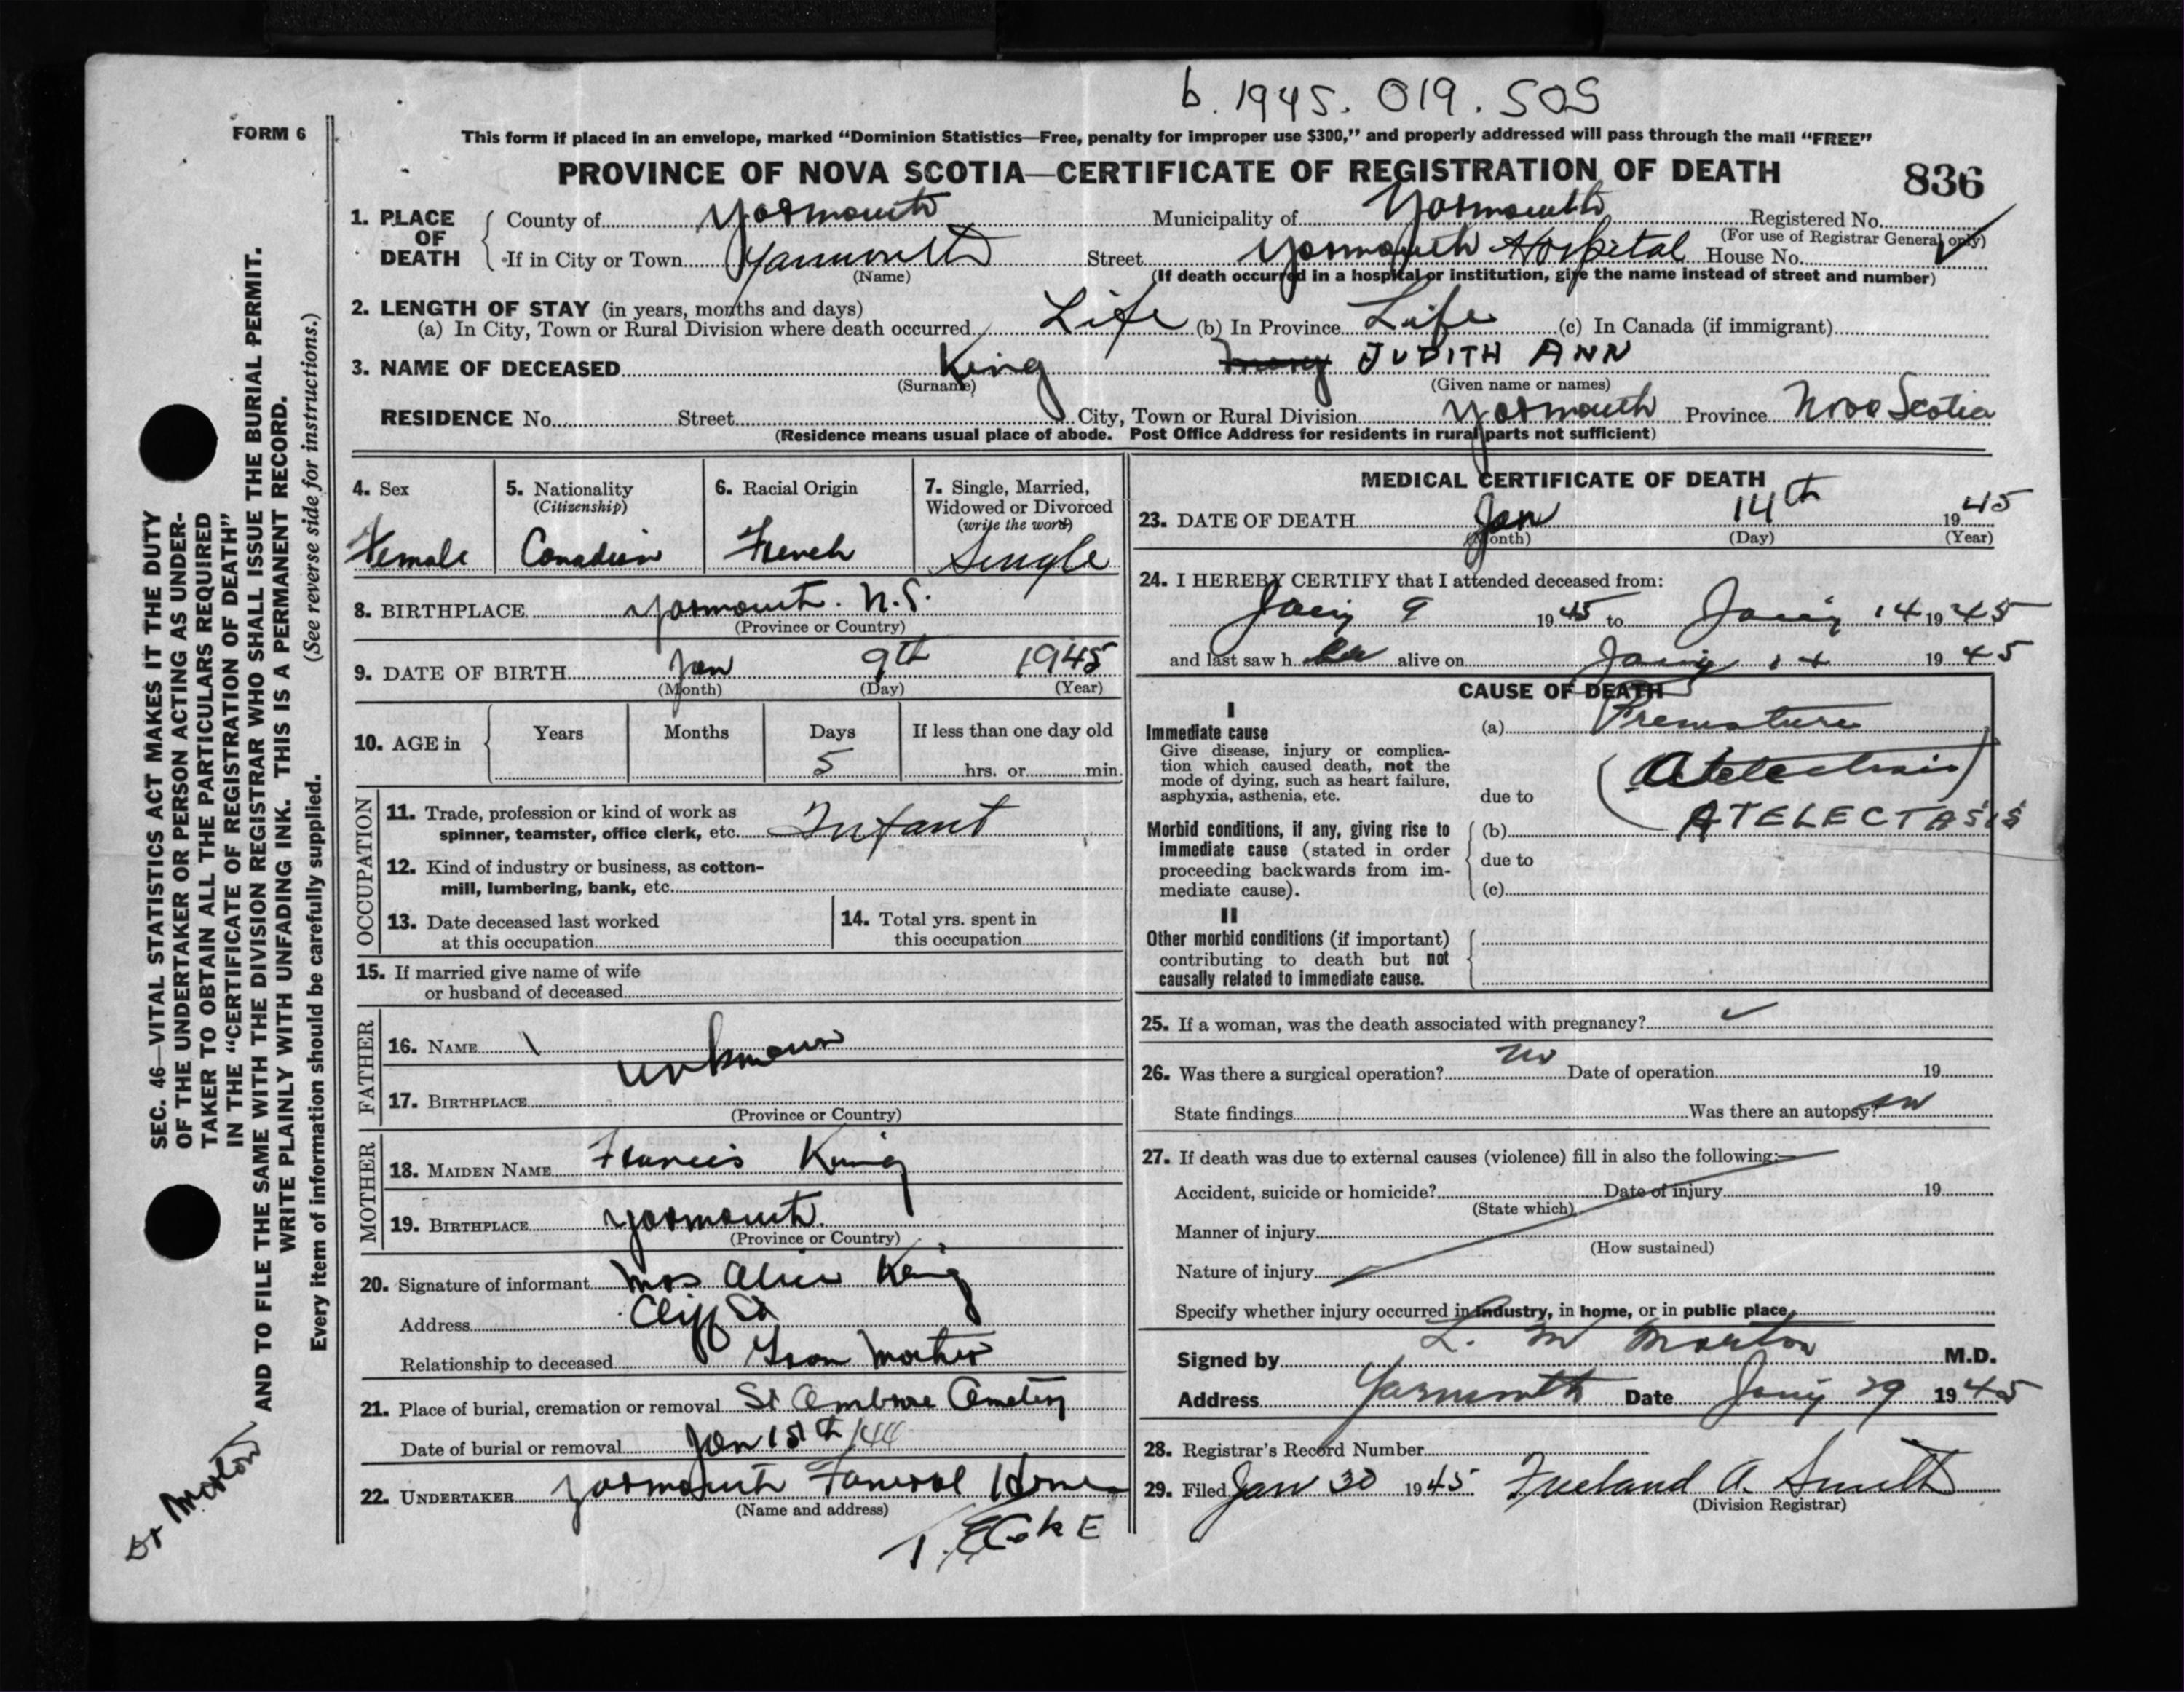 b. 1945. 019. 505
FORM 6
This form if placed in an envelope, marked “Dominion Statistics—Free, penalty for improper use $300,” and properly addressed will pass through the mail “FREE”
PROVINCE OF NOVA SCOTIA—CERTIFICATE OF REGISTRATION OF DEATH
836
1. PLACE OF DEATH
County of Yarmouth Municipality of Yarmouth Registered No.
(For use of Registrar General only)
If in City or Town Yarmouth Street Yarmouth Hospital House No.
(Name) (If death occurred in a hospital or institution, give the name instead of street and number)
2. LENGTH OF STAY (in years, months and days)
(a) In City, Town or Rural Division where death occurred Life (b) In Province Life (c) In Canada (if immigrant)
3. NAME OF DECEASED King Mary JUDITH ANN
(Surname) (Given name or names)
RESIDENCE No. Street City, Town or Rural Division Yarmouth Province Nova Scotia
(Residence means usual place of abode. Post Office Address for residents in rural parts not sufficient)
4. Sex
Female
5. Nationality
(Citizenship)
Canadian
6. Racial Origin
French
7. Single, Married,
Widowed or Divorced
(write the word)
Single
8. BIRTHPLACE Yarmouth. N.S.
(Province or Country)
9. DATE OF BIRTH Jan 9th 1945
(Month) (Day) (Year)
10. AGE in Years Months Days If less than one day old
5 hrs. or min.
OCCUPATION
11. Trade, profession or kind of work as
spinner, teamster, office clerk, etc. Infant
12. Kind of industry or business, as cotton-
mill, lumbering, bank, etc.
13. Date deceased last worked
at this occupation
14. Total yrs. spent in
this occupation
15. If married give name of wife
or husband of deceased
FATHER
16. NAME
unknown
17. BIRTHPLACE
(Province or Country)
MOTHER
18. MAIDEN NAME Francis King
19. BIRTHPLACE Yarmouth.
(Province or Country)
20. Signature of informant Mrs Alice King
Address Cliff St
Relationship to deceased Gran Mother
21. Place of burial, cremation or removal St Ambrose Cemetery
Date of burial or removal Jan 15th/44
22. UNDERTAKER Yarmouth Funeral Home
(Name and address)
MEDICAL CERTIFICATE OF DEATH
23. DATE OF DEATH Jan 14th 1945
(Month) (Day) (Year)
24. I HEREBY CERTIFY that I attended deceased from:
Jany 9 1945 to Jany 14 1945
and last saw h er alive on Jany 14 1945
CAUSE OF DEATH
I
Immediate cause
Give disease, injury or complica-
tion which caused death, not the
mode of dying, such as heart failure,
asphyxia, asthenia, etc.
(a) Premature
(Atelectasis)
due to
Morbid conditions, if any, giving rise to
immediate cause (stated in order
proceeding backwards from im-
mediate cause).
(b) ATELECTASIS
due to
(c)
II
Other morbid conditions (if important)
contributing to death but not
causally related to immediate cause.
25. If a woman, was the death associated with pregnancy?
26. Was there a surgical operation? no Date of operation 19
State findings Was there an autopsy? no
27. If death was due to external causes (violence) fill in also the following:—
Accident, suicide or homicide? Date of injury 19
(State which)
Manner of injury
(How sustained)
Nature of injury
Specify whether injury occurred in industry, in home, or in public place.
Signed by L. M Morton M.D.
Address Yarmouth Date Jany 29 1945
28. Registrar's Record Number
29. Filed Jan 30 1945. Freeland A. Smith
(Division Registrar)
SEC. 46—VITAL STATISTICS ACT MAKES IT THE DUTY
OF THE UNDERTAKER OR PERSON ACTING AS UNDER-
TAKER TO OBTAIN ALL THE PARTICULARS REQUIRED
IN THE “CERTIFICATE OF REGISTRATION OF DEATH”
AND TO FILE THE SAME WITH THE DIVISION REGISTRAR WHO SHALL ISSUE THE BURIAL PERMIT.
WRITE PLAINLY WITH UNFADING INK. THIS IS A PERMANENT RECORD.
Every item of information should be carefully supplied. (See reverse side for instructions.)
Dr Morton